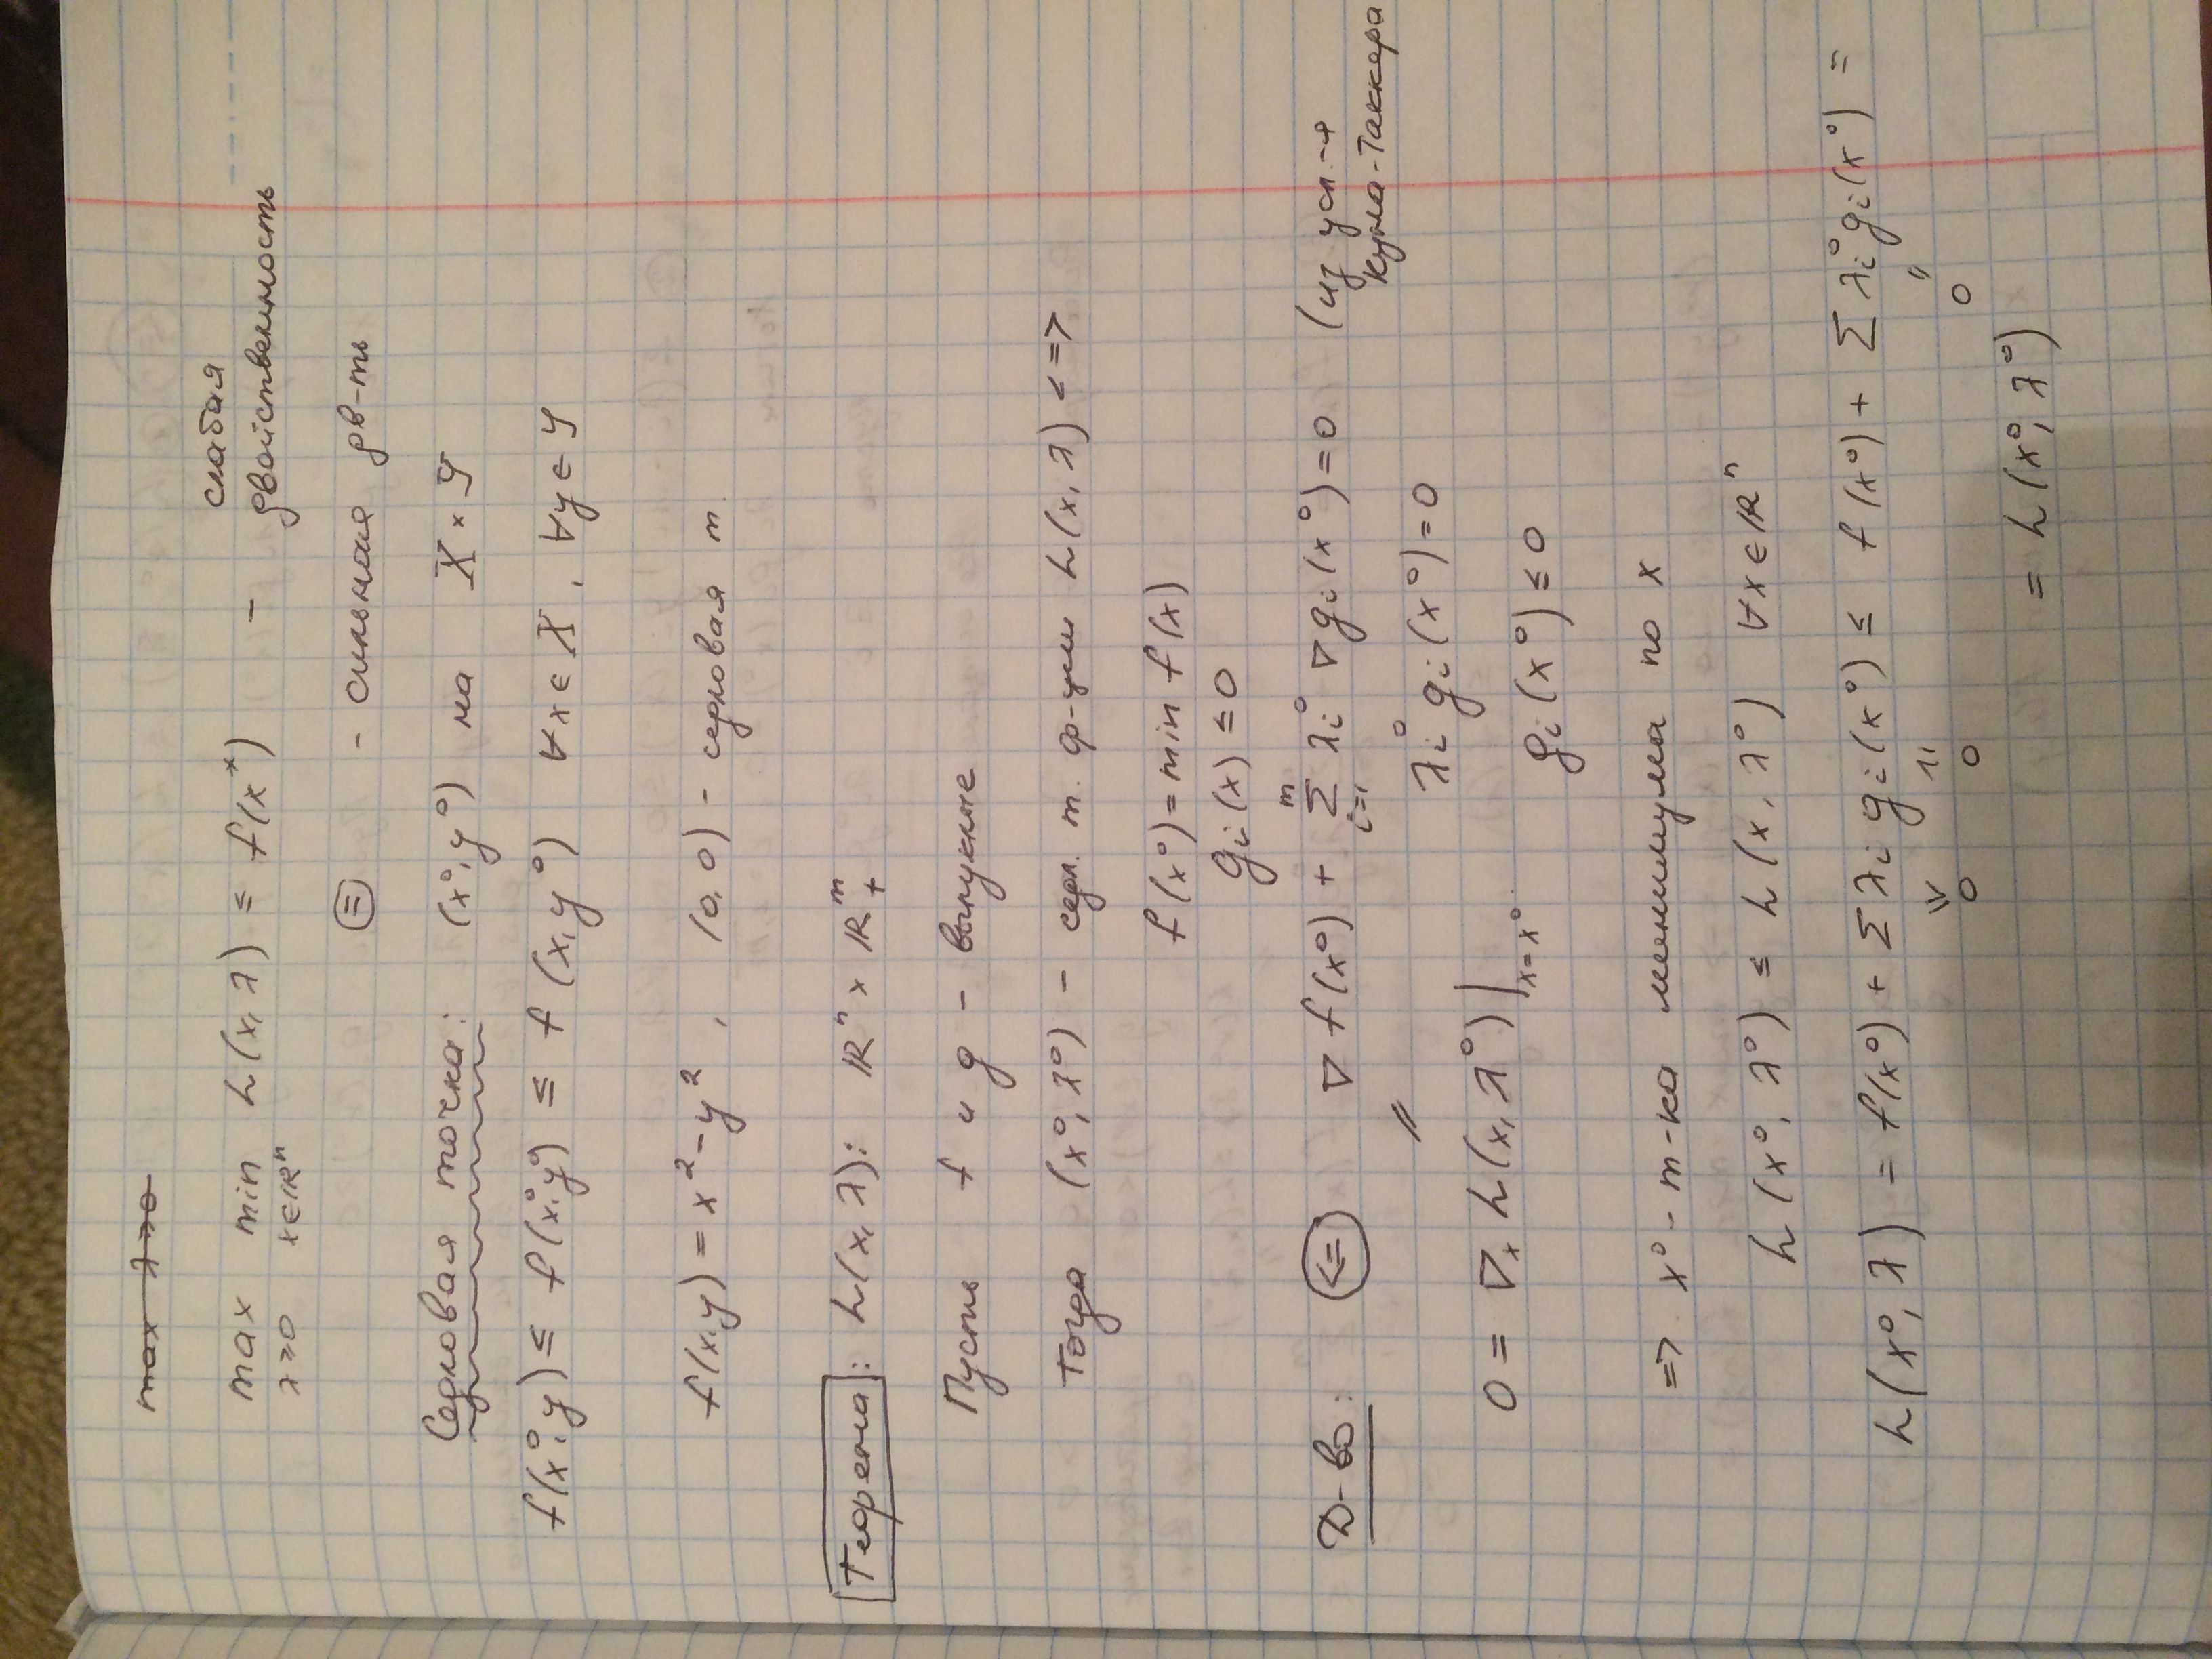 max λ≥0
слабая
max min L(x, λ) ≤ f(x*) - двойственность
λ≥0 x∈ℝⁿ
(=) - сильная дв-ть
Седловая точка: (x⁰, y⁰) на X × Y
f(x⁰, y) ≤ f(x⁰, y⁰) ≤ f(x, y⁰) ∀x ∈ X, ∀y ∈ Y
f(x, y) = x² - y², (0, 0) - седловая т.
Теорема: L(x, λ): ℝⁿ × ℝ₊ᵐ
Пусть f и g - выпуклые
Тогда (x⁰, λ⁰) - седл. т. ф-ции L(x, λ) <=>
f(x⁰) = min f(x)
gᵢ(x) ≤ 0
Д-во: (<=) ∇f(x⁰) + ∑ᵢ₌₁ᵐ λᵢ⁰ ∇gᵢ(x⁰) = 0 (из усл-я
Куна-Таккера
λᵢ⁰ gᵢ(x⁰) = 0
=
0 = ∇ₓ L(x, λ⁰)|ₓ₌ₓ⁰ gᵢ(x⁰) ≤ 0
=> x⁰ - т-ка минимума по x
L(x⁰, λ⁰) ≤ L(x, λ⁰) ∀x ∈ ℝⁿ
L(x⁰, λ) = f(x⁰) + ∑ λᵢ gᵢ(x⁰) ≤ f(x⁰) + ∑ λᵢ⁰ gᵢ(x⁰) =
0 0 0
= L(x⁰, λ⁰)